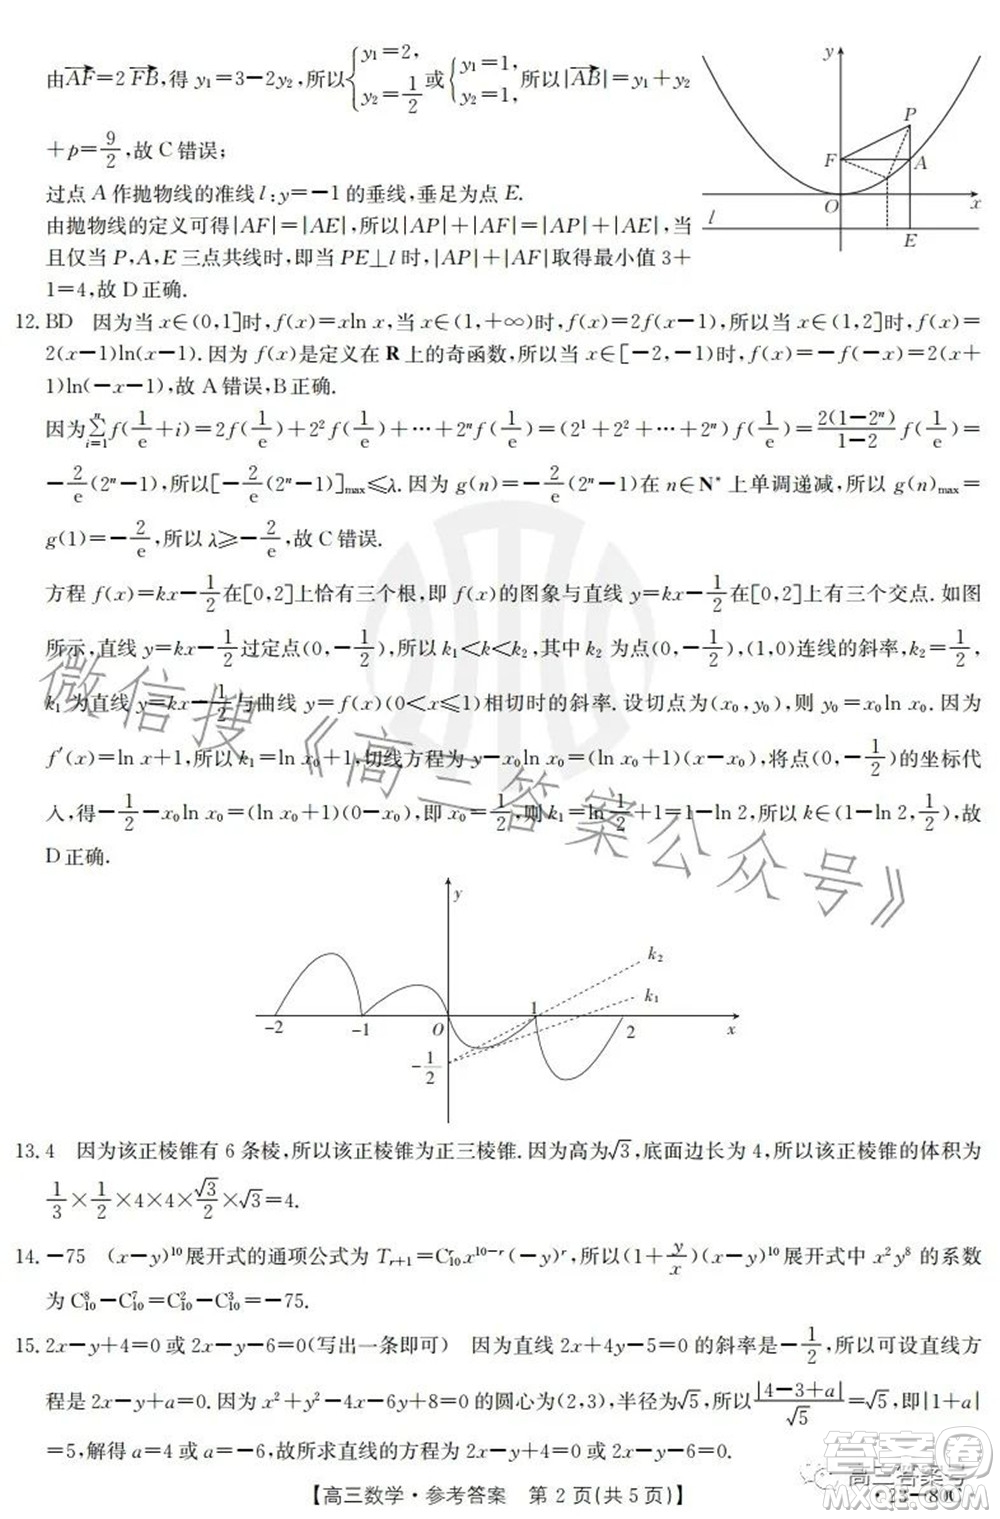 由AF=2FB,得 y₁=3-2y₂,所以{y₁=2, y₂=1/2 或{y₁=1, y₂=1, 所以|AB|=y₁+y₂
+p=9/2,故 C 错误;
过点 A 作抛物线的准线 l:y=-1 的垂线,垂足为点 E.
由抛物线的定义可得|AF|=|AE|,所以|AP|+|AF|=|AP|+|AE|,当
且仅当 P,A,E 三点共线时,即当 PE⊥l 时,|AP|+|AF|取得最小值 3+
1=4,故 D 正确.
y
P
F
A
O
x
l
E
12. BD 因为当 x∈(0,1]时,f(x)=xln x,当 x∈(1,+∞)时,f(x)=2f(x-1),所以当 x∈(1,2]时,f(x)=
2(x-1)ln(x-1).因为 f(x)是定义在 R 上的奇函数,所以当 x∈[-2,-1)时,f(x)=-f(-x)=2(x+
1)ln(-x-1),故 A 错误,B 正确.
因为∑ⁿᵢ₌₁f(1/e+i)=2f(1/e)+2²f(1/e)+…+2ⁿf(1/e)=(2¹+2²+…+2ⁿ)f(1/e)=2(1-2ⁿ)/(1-2) f(1/e)=
-2/e(2ⁿ-1),所以[-2/e(2ⁿ-1)]max≤λ.因为 g(n)=-2/e(2ⁿ-1)在 n∈N* 上单调递减,所以 g(n)max=
g(1)=-2/e,所以 λ≥-2/e,故 C 错误.
方程 f(x)=kx-1/2在[0,2]上恰有三个根,即 f(x)的图象与直线 y=kx-1/2在[0,2]上有三个交点.如图
所示,直线 y=kx-1/2过定点(0,-1/2),所以 k₁<k<k₂,其中 k₂ 为点(0,-1/2),(1,0)连线的斜率,
k₁ 为直线 y=kx-1/2与曲线 f(x)(0<x≤1)相切时的斜率.设切点为(x₀,y₀),则 y₀=x₀ln x₀.因为
f′(x)=ln x+1,所以k₁=ln x₀+1,切线方程为 y-x₀ln x₀=(ln x₀+1)(x-x₀),将点(0,-1/2)的坐标代
入,得-1/2-x₀ln x₀=(ln x₀+1)(0-x₀),即 x₀=1/2,则 k₁=ln 1/2+1=1-ln 2,所以 k∈(1-ln 2,1/2),故
D 正确.
y
k₂
k₁
-2
-1
0
1
2
x
-1/2
13. 4 因为该正棱锥有 6 条棱,所以该正棱锥为正三棱锥.因为高为√3,底面边长为 4,所以该正棱锥的体积为
1/3×1/2×4×4×√3/2×√3=4.
14. -75 (x-y)¹⁰展开式的通项公式为 Tᵣ₊₁=C₁₀ʳx¹⁰⁻ʳ(-y)ʳ,所以(1+y/x)(x-y)¹⁰展开式中 x²y⁸ 的系数
为 C₁₀⁸-C₁₀⁷=C₁₀²-C₁₀³=-75.
15. 2x-y+4=0 或 2x-y-6=0(写出一条即可) 因为直线 2x+4y-5=0 的斜率是-1/2,所以可设直线方
程是 2x-y+a=0.因为 x²+y²-4x-6y+8=0 的圆心为(2,3),半径为√5,所以|4-3+a|/√5=√5,即|1+a|
=5,解得 a=4 或 a=-6,故所求直线的方程为 2x-y+4=0 或 2x-y-6=0.
【高三数学·参考答案 第 2 页(共 5 页)】
·23-80C·
微信搜《高三答案公众号》
高三答案号
答案圈